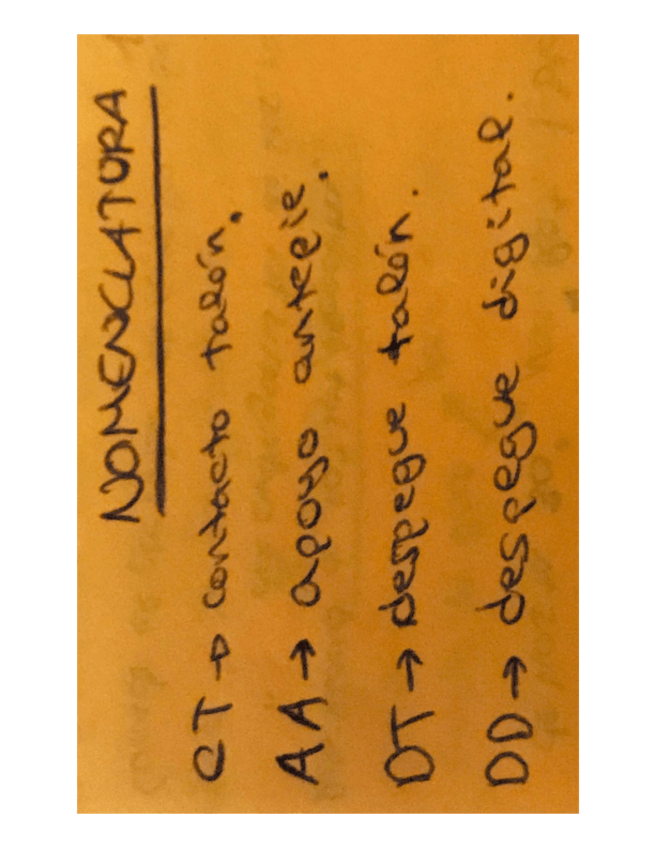 NOMENCLATURA
CT → contacto talón.
AA → apoyo antepie.
DT → despegue talón.
DD → despegue digital.